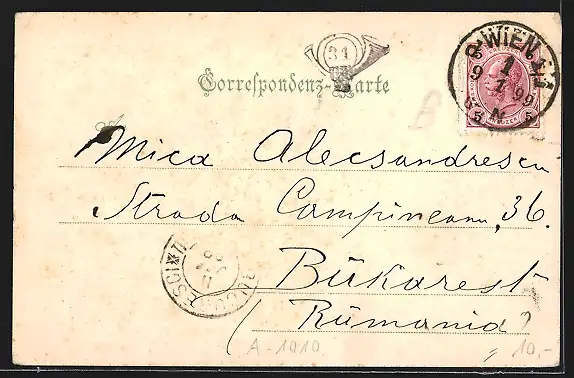 31
Correspondenz-Karte
WIEN
9 7 99
5 KREUZER 5
Mica Alecsandrescu
Strada Campineanu, 36.
Bŭkarest
Rŭmania
A-1010
10,-